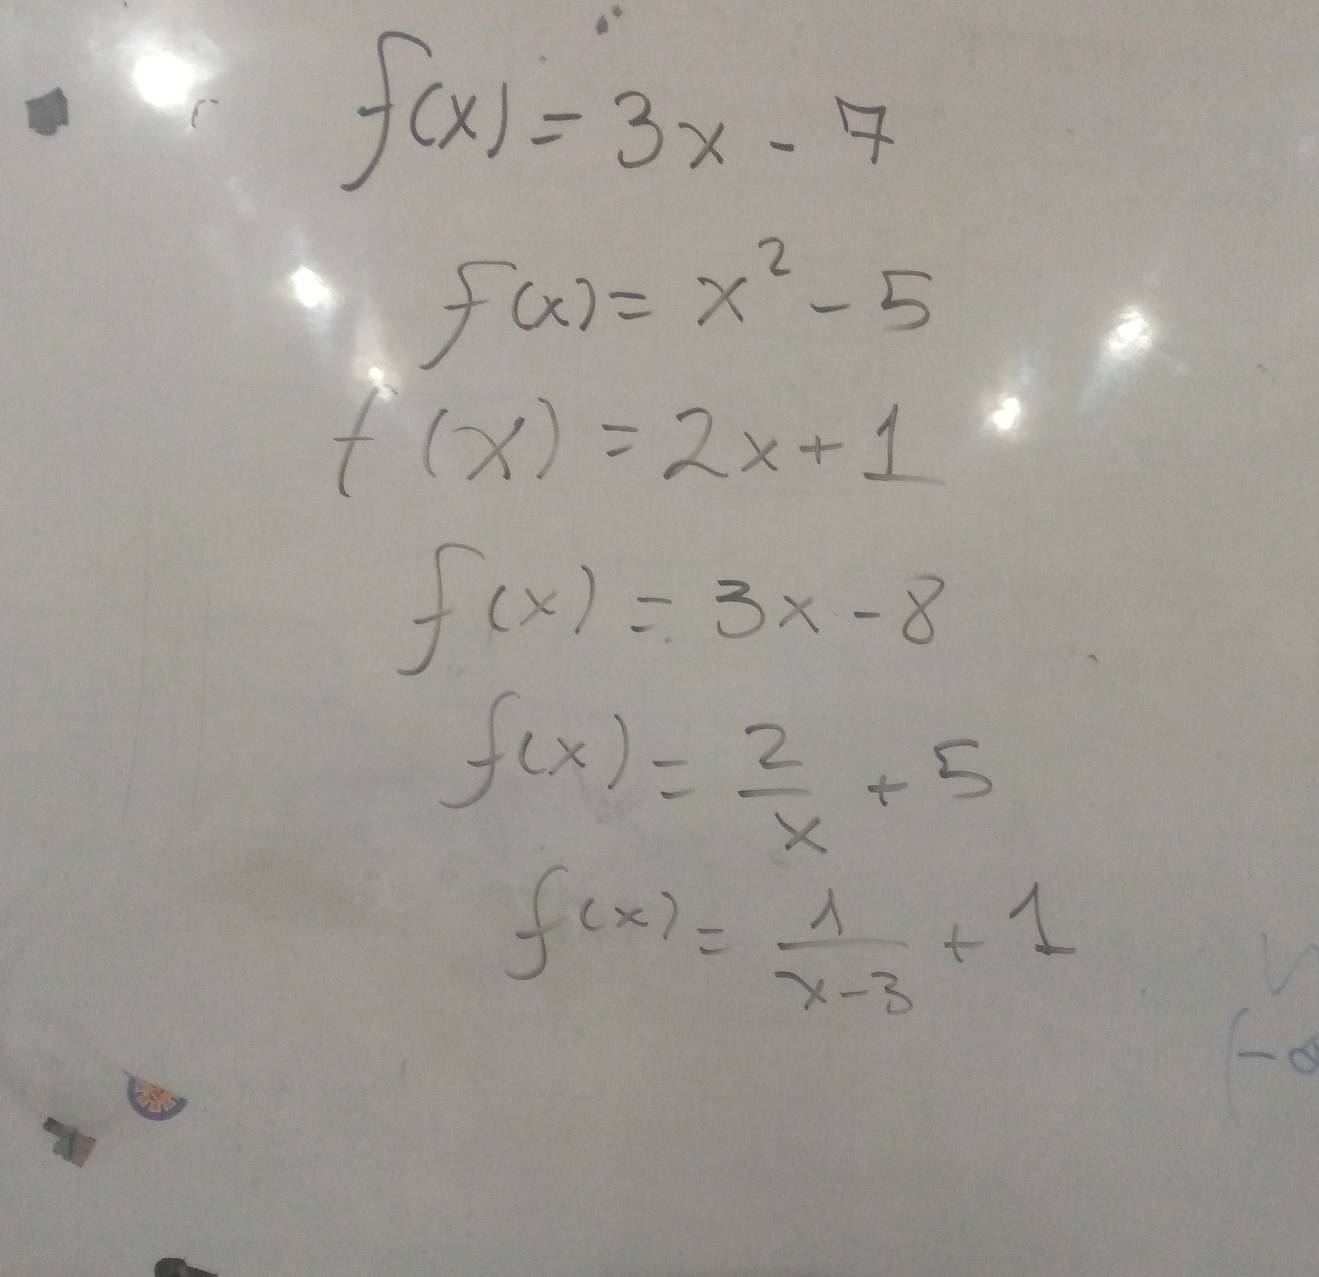 f(x) = 3x - 7
f(x) = x² - 5
f(x) = 2x + 1
f(x) = 3x - 8
f(x) = 2/x + 5
f(x) = 1/(x-3) + 1
(-∞